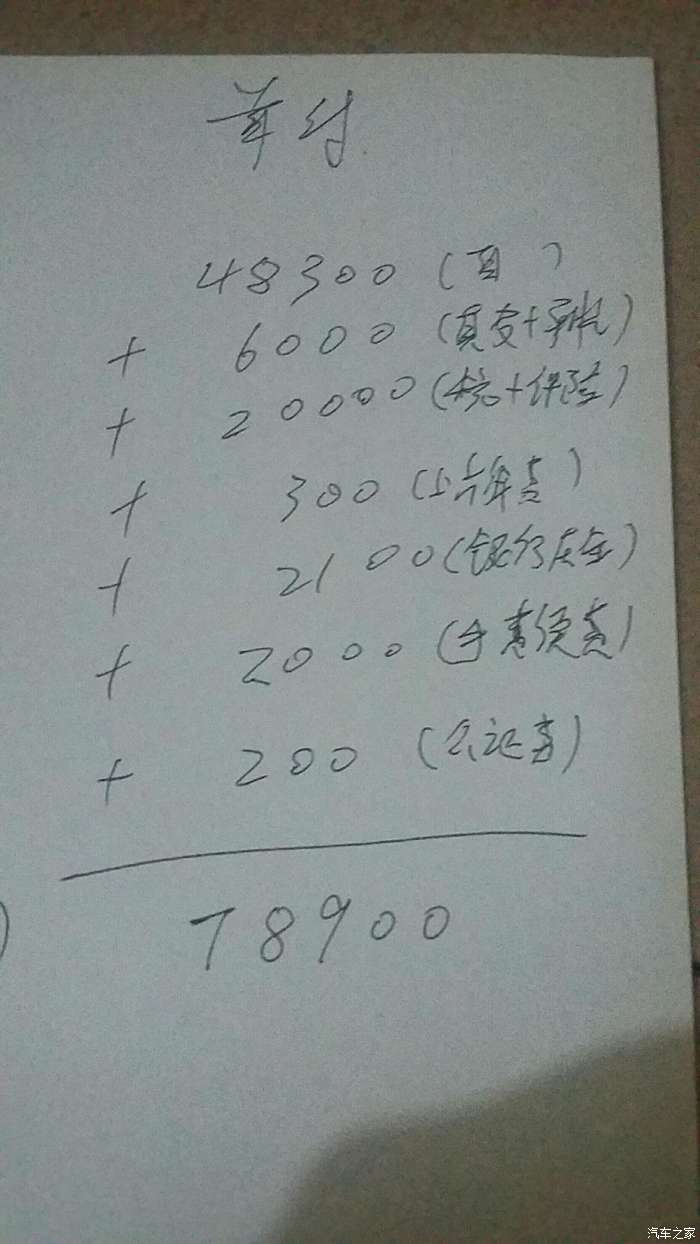 首付
48300 (首)
+ 6000 (真皮+导航)
+ 20000 (税+保险)
+ 300 (上牌费)
+ 2100 (银行)
+ 2000 (手续费)
+ 200 (公证费)
78900
汽车之家